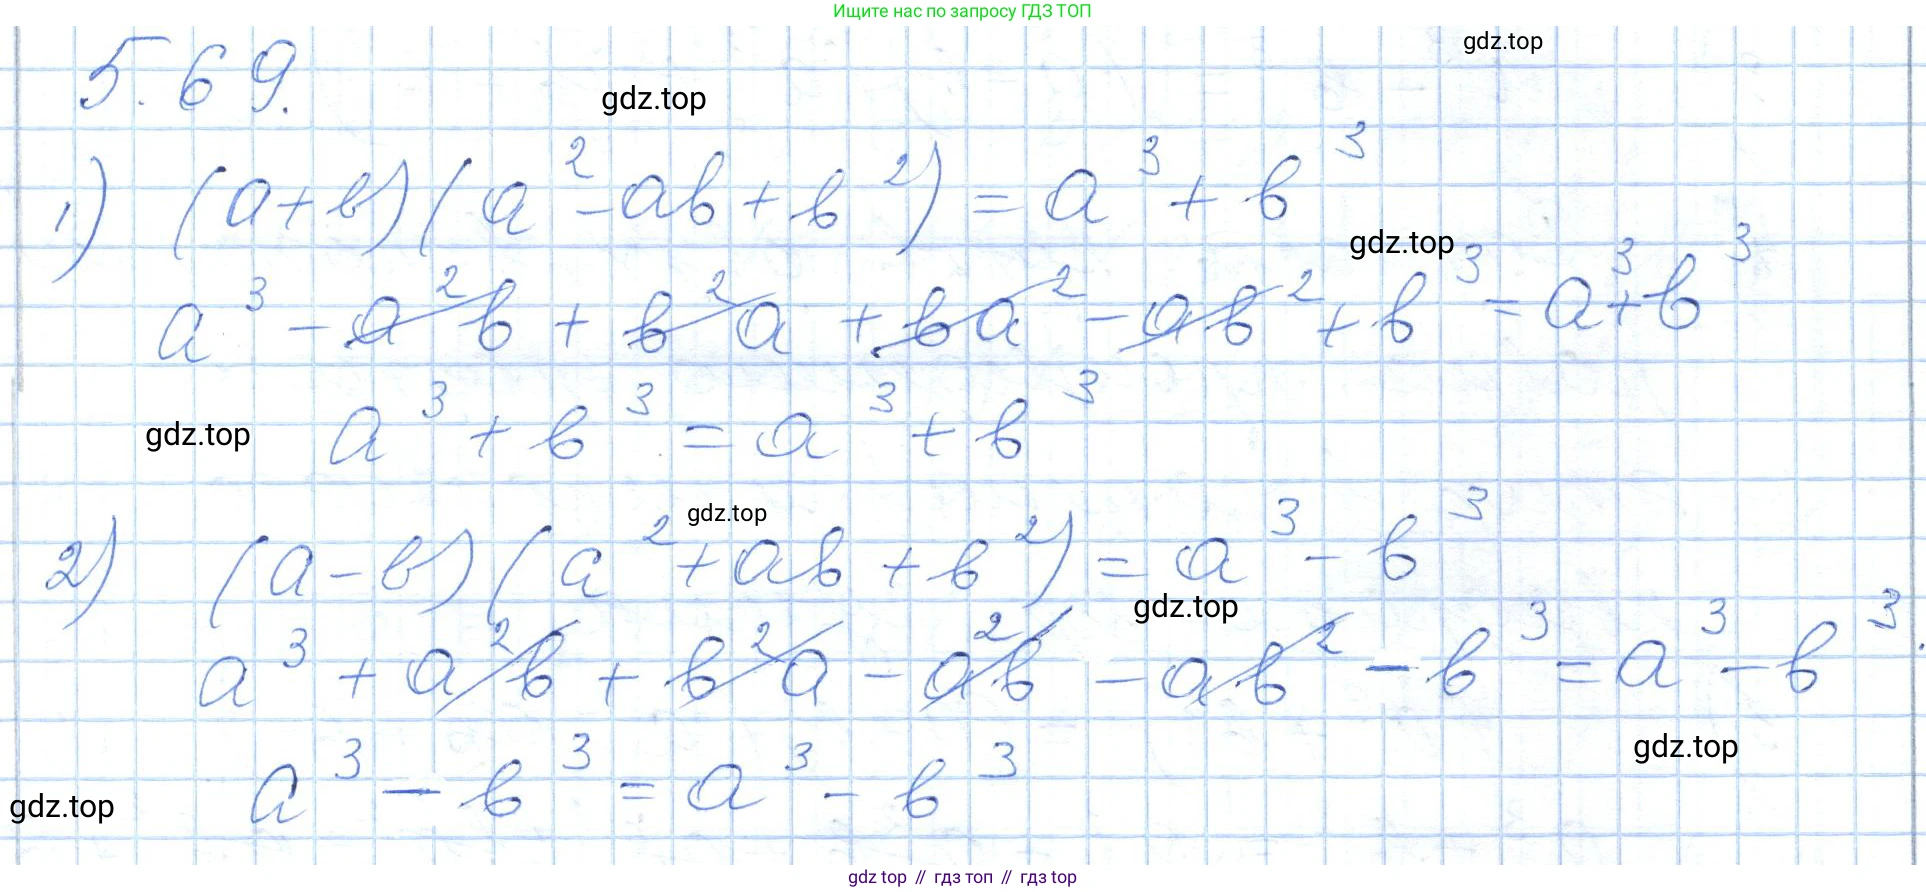 Ищите нас по запросу ГДЗ ТОП
gdz.top
5.69.
gdz.top
1) (a+b)(a²-ab+b²)=a³+b³
gdz.top
a³-a²b+b²a+ba²-ab²+b³=a³+b³
gdz.top
a³+b³=a³+b³
gdz.top
2) (a-b)(a²+ab+b²)=a³-b³
gdz.top
a³+a²b+b²a-a²b-ab²-b³=a³-b³
gdz.top
a³-b³=a³-b³
gdz.top
gdz top // гдз топ // гдз top